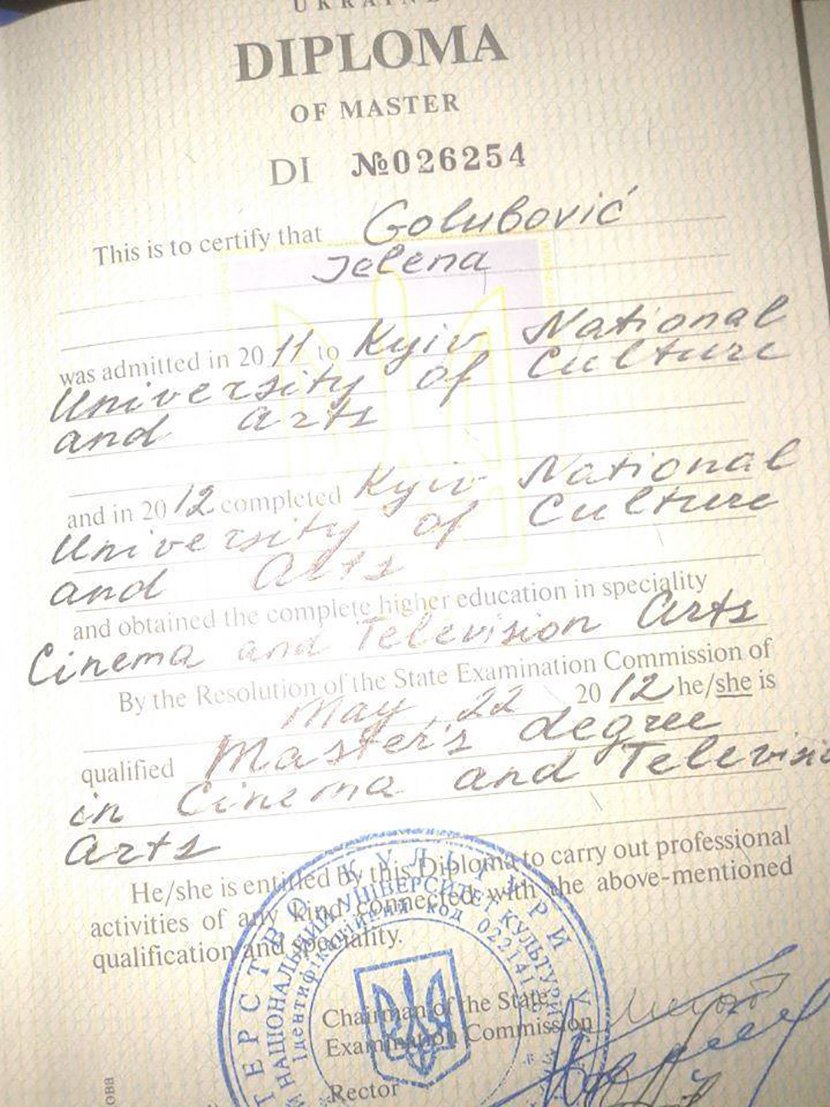 DIPLOMA
OF MASTER
DI №026254
This is to certify that Golubović
Jelena
was admitted in 2011 to Kyiv National
University of Culture
and Arts
and in 2012 completed Kyiv National
University of Culture
and Arts
and obtained the complete higher education in speciality
Cinema and Television Arts
By the Resolution of the State Examination Commission of
May, 22 2012 he/she is
qualified Master's degree
in Cinema and Televisi
Arts
He/she is entitled by this Diploma to carry out professional
activities of any kind connected with the above-mentioned
qualification and speciality.
Chairman of the State
Examination Commission
Rector